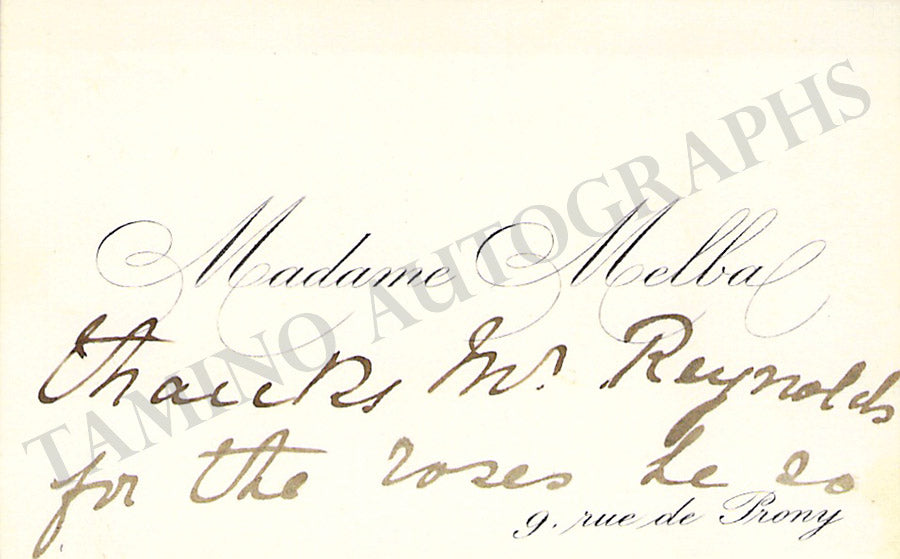 Madame Melba
thanks Mr. Reynolds
for the roses he so
9. rue de Prony
TAMINO AUTOGRAPHS